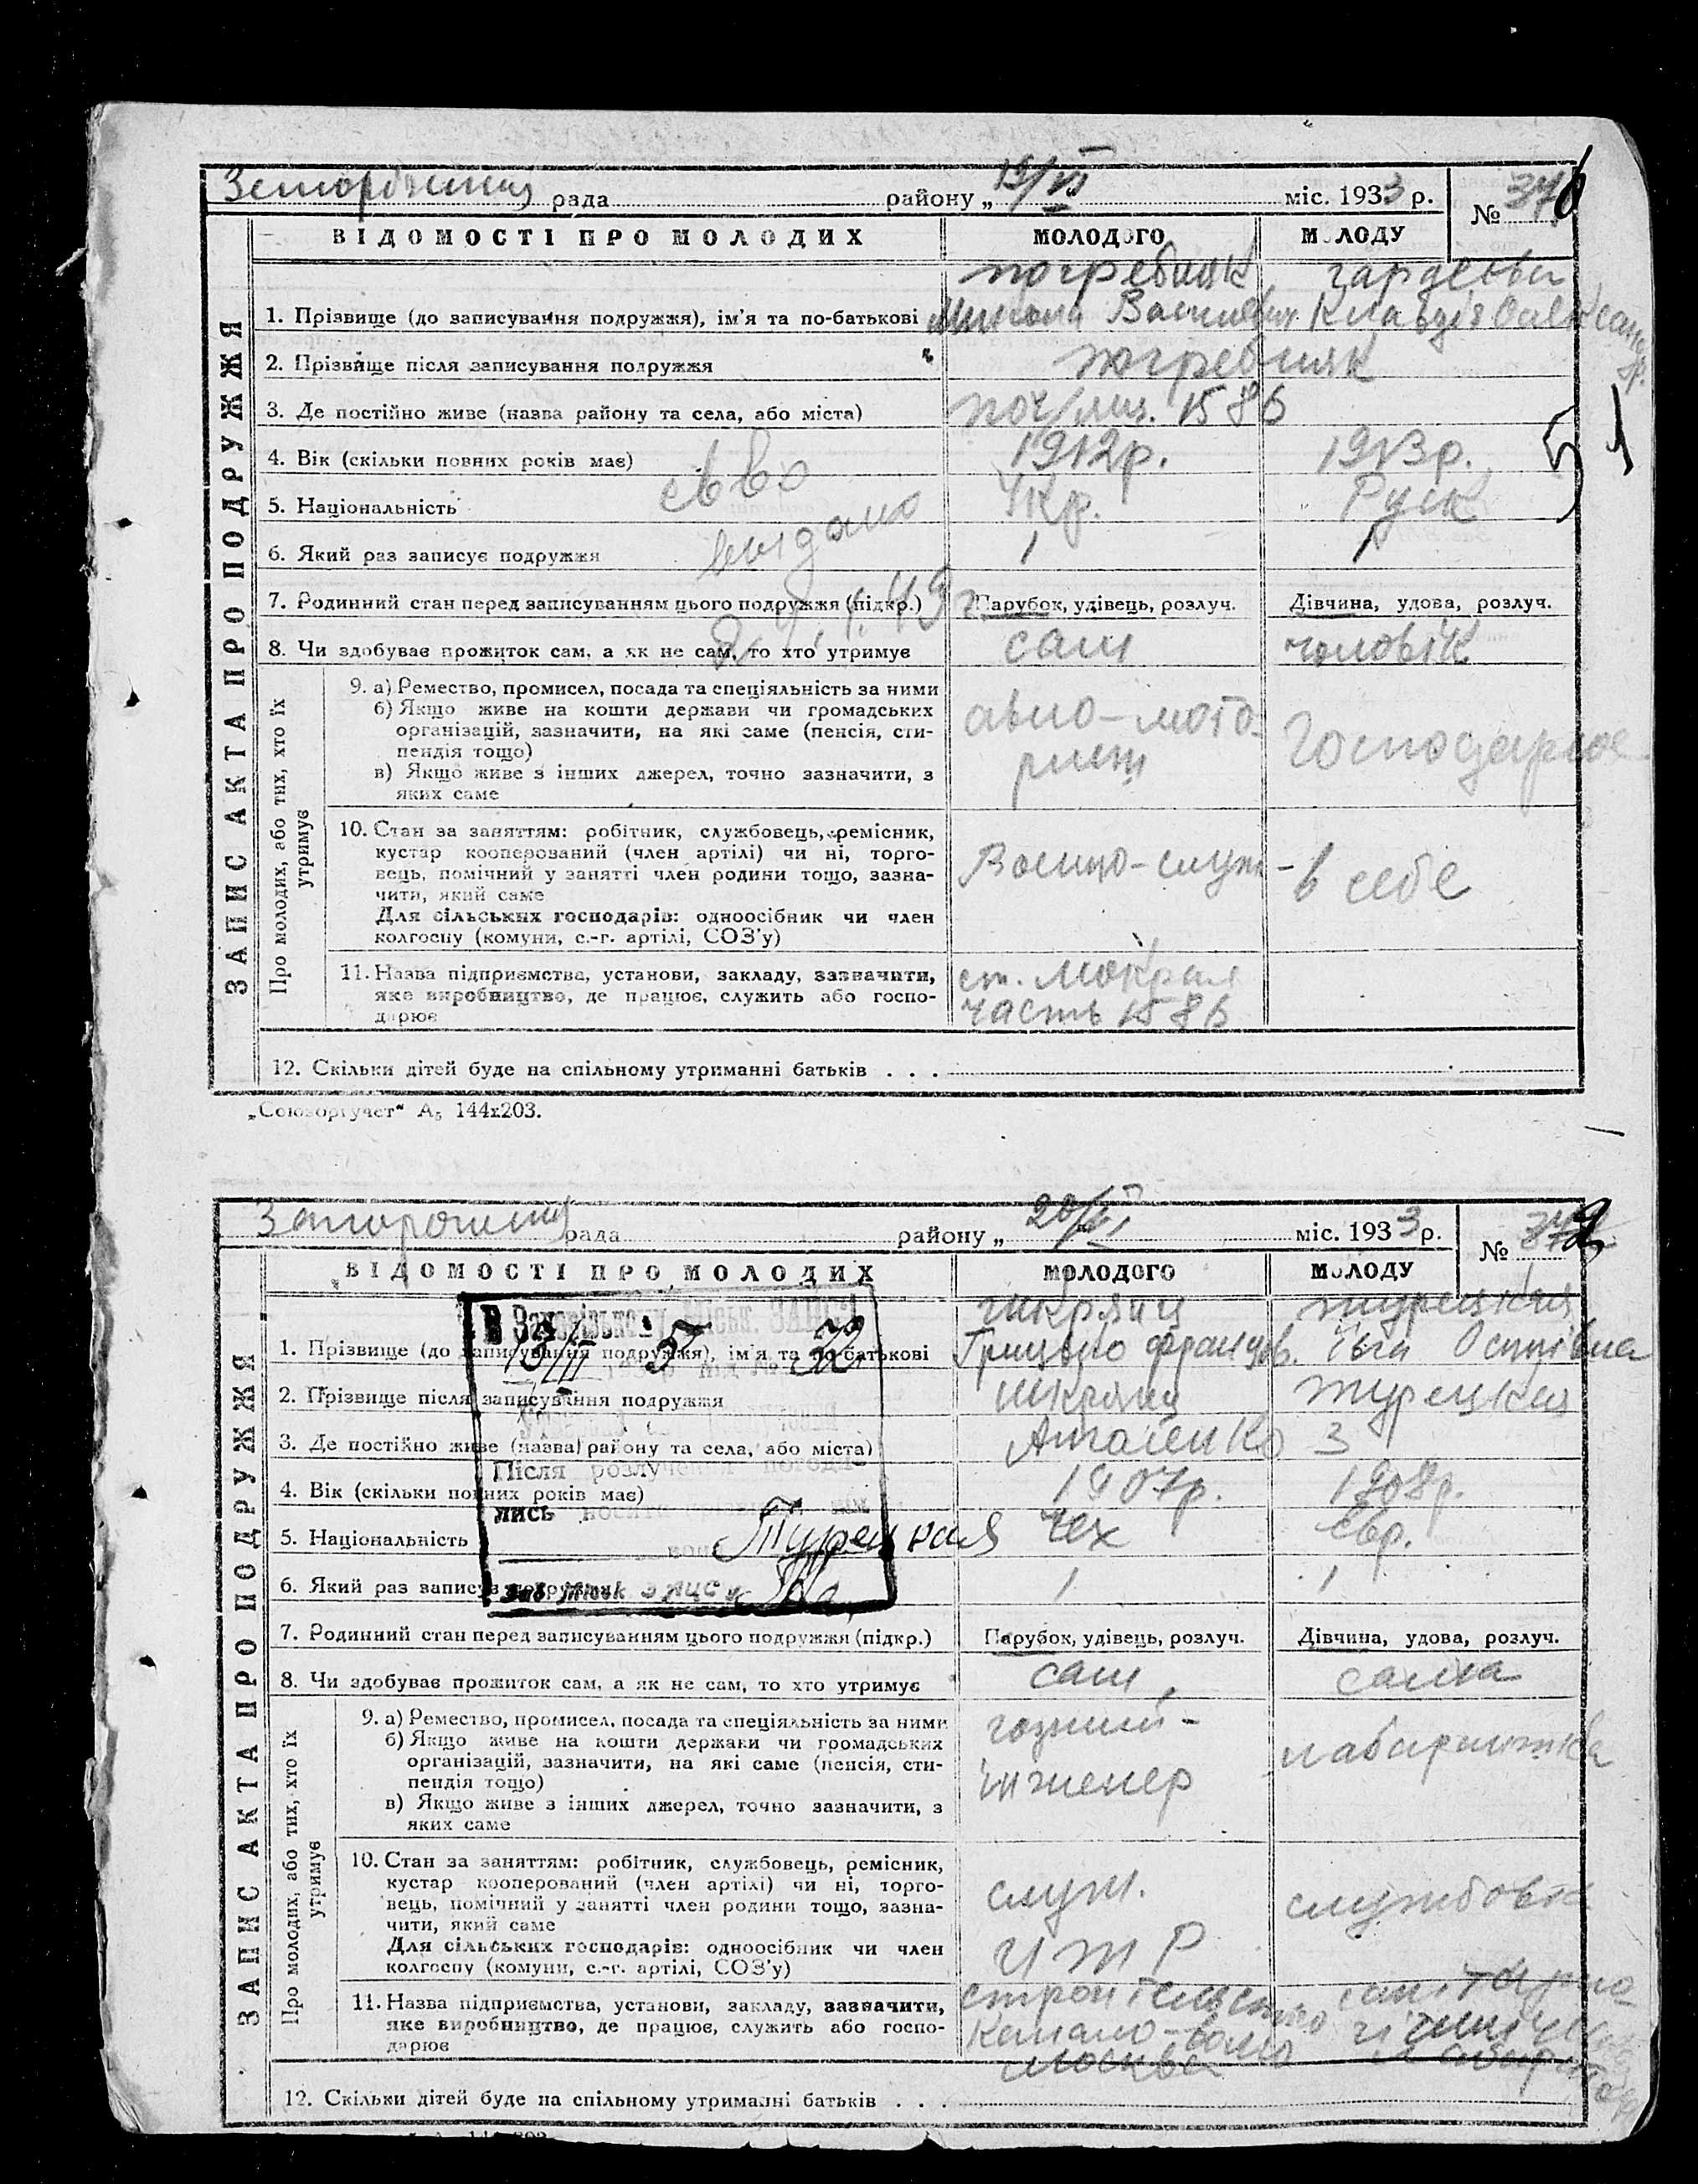 рада району „19/VI міс. 1933 р. №
ВІДОМОСТІ ПРО МОЛОДИХ МОЛОДОГО МОЛОДУ
ЗАПИС АКТА ПРО ПОДРУЖЖЯ
погребняк
1. Прізвище (до записування подружжя), ім'я та по-батькові Микола Васильович Клавдія Олександр.
2. Прізвище після записування подружжя погребняк
3. Де постійно живе (назва району та села, або міста) 1586
4. Вік (скільки повних років має) 1912р. 1913р.
5. Національність Укр. Руск
6. Який раз записує подружжя 1 1
св во
выдано
7. Родинний стан перед записуванням цього подружжя (підкр.) Парубок, удівець, розлуч. Дівчина, удова, розлуч.
8. Чи здобуває прожиток сам, а як не сам, то хто утримує сам чоловік
Про молодих, або тих, хто їх утримує
9. а) Ремество, промисел, посада та спеціяльність за ними
б) Якщо живе на кошти держави чи громадських
організацій, зазначити, на які саме (пенсія, сти-
пендія тощо)
в) Якщо живе з інших джерел, точно зазначити, з
яких саме
авио-мото-
рист
10. Стан за заняттям: робітник, службовець, ремісник,
кустар кооперований (член артілі) чи ні, торго-
вець, помічний у занятті член родини тощо, зазна-
чити, який саме
Для сільських господарів: одноосібник чи член
колгоспу (комуни, с.-г. артілі, СОЗ'у)
в себе
11. Назва підприємства, установи, закладу, зазначити,
яке виробництво, де працює, служить або госпо-
дарює
ст. Мокрая
часть 1586
12. Скільки дітей буде на спільному утриманні батьків . . .
„Союзоргучет“ А₅ 144х203.
рада району „20/VI міс. 1933 р. №
ВІДОМОСТІ ПРО МОЛОДИХ МОЛОДОГО МОЛОДУ
ЗАПИС АКТА ПРО ПОДРУЖЖЯ
шкрянц турецкая
1. Прізвище (до записування подружжя), ім'я та по-батькові Грицько Францов. Осипівна
2. Прізвище після записування подружжя турецкая
3. Де постійно живе (назва району та села, або міста) 3
4. Вік (скільки повних років має) 1907р. 1908р.
5. Національність Чех Євр.
6. Який раз записує подружжя 1 1
Після розлучення
лись
Турецкая
7. Родинний стан перед записуванням цього подружжя (підкр.) Парубок, удівець, розлуч. Дівчина, удова, розлуч.
8. Чи здобуває прожиток сам, а як не сам, то хто утримує сам сама
Про молодих, або тих, хто їх утримує
9. а) Ремество, промисел, посада та спеціяльність за ними
б) Якщо живе на кошти держави чи громадських
організацій, зазначити, на які саме (пенсія, сти-
пендія тощо)
в) Якщо живе з інших джерел, точно зазначити, з
яких саме
інженер
лаборантка
10. Стан за заняттям: робітник, службовець, ремісник,
кустар кооперований (член артілі) чи ні, торго-
вець, помічний у занятті член родини тощо, зазна-
чити, який саме
Для сільських господарів: одноосібник чи член
колгоспу (комуни, с.-г. артілі, СОЗ'у)
служ.
ИТР
11. Назва підприємства, установи, закладу, зазначити,
яке виробництво, де працює, служить або госпо-
дарює
Москва
12. Скільки дітей буде на спільному утриманні батьків . . .